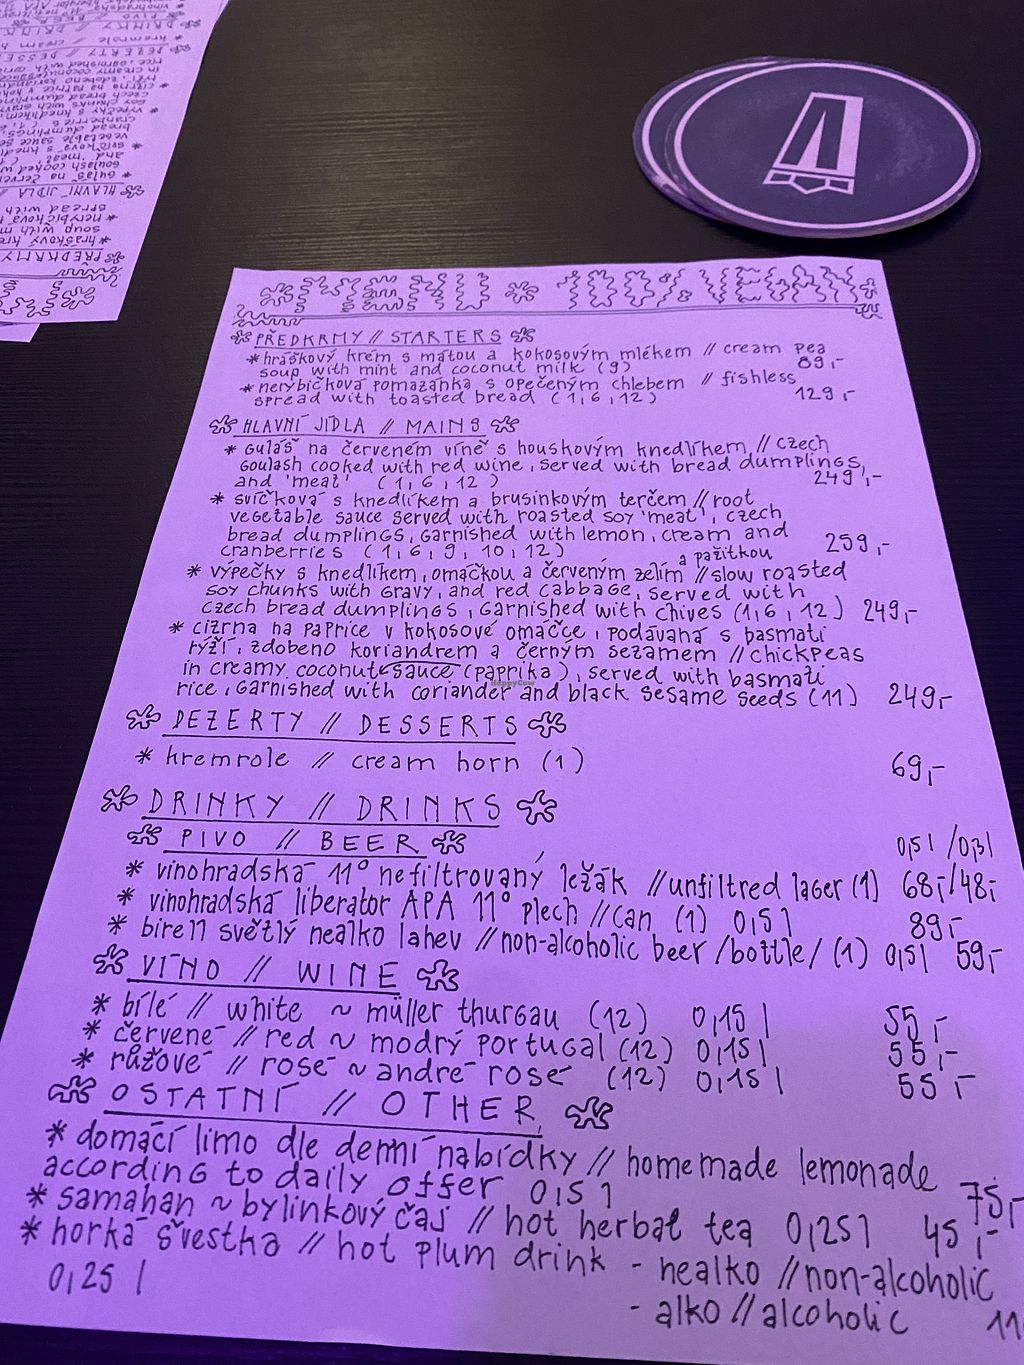 MENU * 100% VEGAN
PŘEDKRMY // STARTERS
* hráškový krém s mátou a kokosovým mlékem // cream pea
soup with mint and coconut milk (9) 89,-
* nerybičková pomazánka s opečeným chlebem // fishless
spread with toasted bread (1,6,12) 129,-
HLAVNÍ JÍDLA // MAINS
* Guláš na červeném víně s houskovým knedlíkem // czech
Goulash cooked with red wine, served with bread dumplings,
and 'meat' (1,6,12) 249,-
* svíčková s knedlíkem a brusinkovým terčem // root
vegetable sauce served with roasted soy 'meat', czech
bread dumplings, garnished with lemon, cream and
cranberries (1,6,9,10,12) 259,-
a pažitkou
* výpečky s knedlíkem, omáčkou a červeným zelím // slow roasted
soy chunks with gravy, and red cabbage, served with
czech bread dumplings, garnished with chives (1,6,12) 249,-
* cizrna na paprice v kokosové omáčce, podávaná s basmati
rýží, zdobeno koriandrem a černým sezamem // chickpeas
in creamy coconut sauce (paprika), served with basmati
rice, garnished with coriander and black sesame seeds (11) 249,-
HappyCow
DEZERTY // DESSERTS
* kremrole // cream horn (1) 69,-
DRINKY // DRINKS
PIVO // BEER 0,5l / 0,3l
* vinohradská 11° nefiltrovaný ležák // unfiltred lager (1) 68,-/48,-
* vinohradská liberator APA 11° plech // can (1) 0,5l 89,-
* birell světlý nealko lahev // non-alcoholic beer /bottle/ (1) 0,5l 59,-
VÍNO // WINE
* bílé // white ~ müller thurgau (12) 0,15 l 55,-
* červené // red ~ modrý portugal (12) 0,15 l 55,-
* růžové // rosé ~ andré rosé (12) 0,15 l 55,-
OSTATNÍ // OTHER
* domácí limo dle denní nabídky // homemade lemonade
according to daily offer 0,5 l 75,-
* samahan ~ bylinkový čaj // hot herbal tea 0,25 l 45,-
* horká švestka // hot plum drink - nealko // non-alcoholic
0,25 l - alko // alcoholic 11